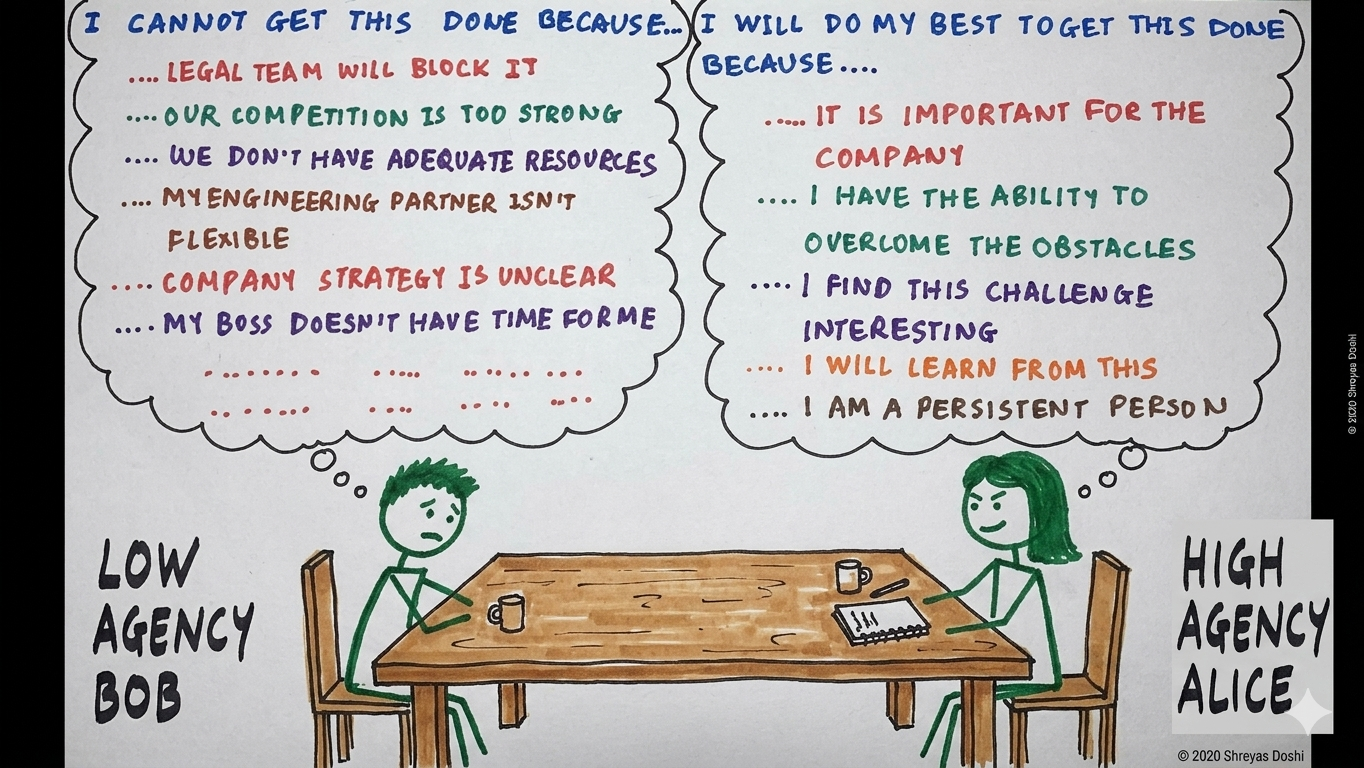 I CANNOT GET THIS DONE BECAUSE...
.... LEGAL TEAM WILL BLOCK IT
.... OUR COMPETITION IS TOO STRONG
.... WE DON'T HAVE ADEQUATE RESOURCES
.... MY ENGINEERING PARTNER ISN'T
FLEXIBLE
.... COMPANY STRATEGY IS UNCLEAR
.... MY BOSS DOESN'T HAVE TIME FOR ME
I WILL DO MY BEST TO GET THIS DONE
BECAUSE....
..... IT IS IMPORTANT FOR THE
COMPANY
.... I HAVE THE ABILITY TO
OVERCOME THE OBSTACLES
.... I FIND THIS CHALLENGE
INTERESTING
.... I WILL LEARN FROM THIS
.... I AM A PERSISTENT PERSON
LOW
AGENCY
BOB
HIGH
AGENCY
ALICE
© 2020 Shreyas Doshi
© 2020 Shreyas Doshi